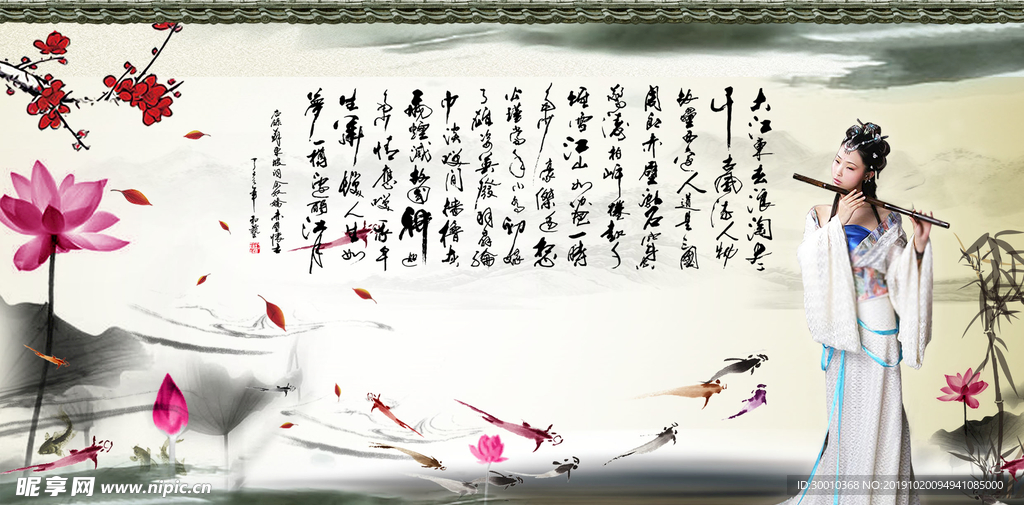 大江東去浪淘盡
千古風流人物
故壘西邊人道是三國
周郎赤壁亂石穿空
驚濤拍岸捲起千
堆雪江山如畫一時
多少豪傑遙想
公瑾當年小喬初嫁
了雄姿英發羽扇綸
巾談笑間檣櫓灰
飛煙滅故國神遊
多情應笑我早
生華髮人生如
夢一樽還酹江月
蘇東坡詞念奴嬌赤壁懷古
昵享网 www.nipic.cn
ID:30010368 NO:20191020094941085000